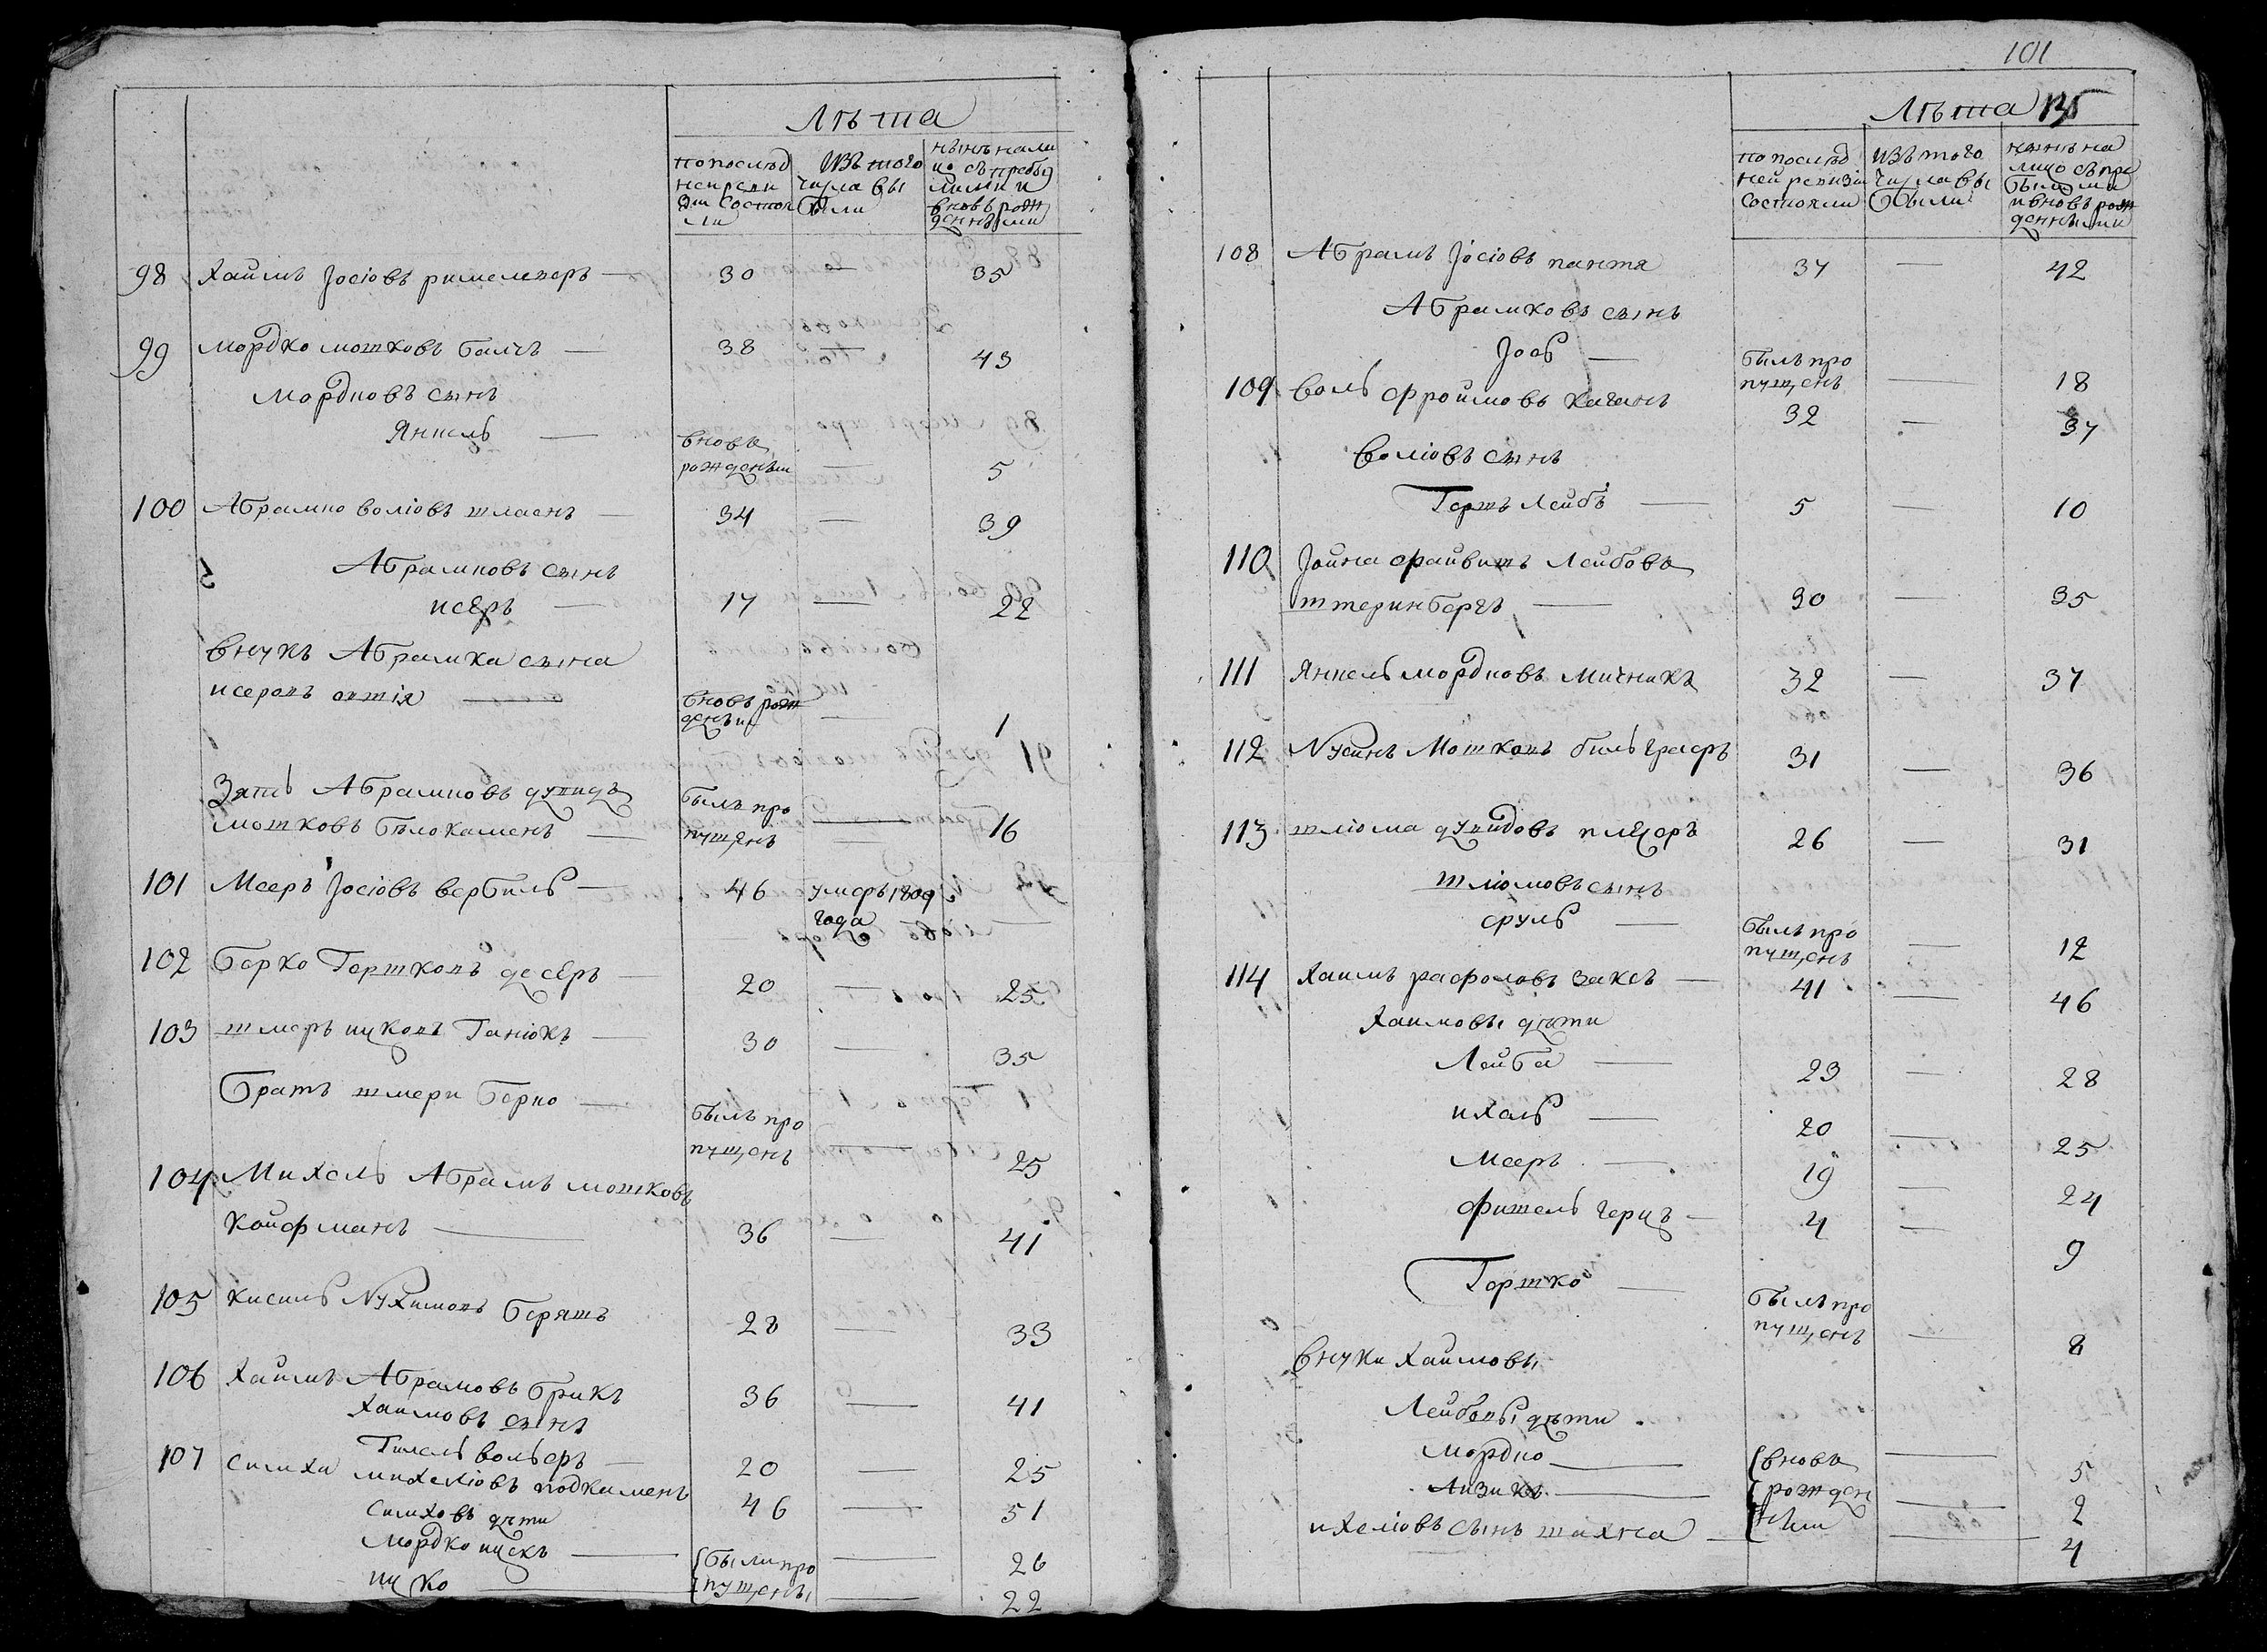 Лѣта
по послѣд ней реви зіи состоя ли
изъ того числа вы были
нынѣ нали цо съ прибы лыми и вновь рож денными
98 Хаимъ Јосіовъ римелверъ — 30 — 35
99 Мордко мошковъ балъ — 38 — 43
Мордковъ сынъ
Янкель — вновь рожденый — 5
100 Абрамко воліовъ — 34 — 39
Абрамковъ сынъ
исеръ — 17 — 22
внукъ Абрамка сына
исеровъ — вновь рож деный — 1
Зять Абрамковъ дувидъ
мошковъ бѣлокамень — былъ про пущенъ — 16
101 Мееръ Јосіовъ вербиль — 46 умеръ 1809 года —
102 Берко Гершковъ десеръ — 20 — 25
103 шмеръ ицковъ Ганіокъ — 30 — 35
Братъ шмери Берко — былъ про пущенъ — 25
104 Михель Абрамъ мошковъ
койфманъ — 36 — 41
105 кисиль Нухимовъ Беряшъ 28 — 33
106 Хаимъ Абрамовъ брикъ 36 — 41
Хаимовъ сынъ
Гилель вольеръ — 20 — 25
107 симха михеліовъ подкамень 46 — 51
симховъ дѣти
Мордко ицекъ — были про — 26
ицко — пущены — 22
101
Лѣта 135
по послѣд ней ревизіи состояли
изъ того числа вы были
нынѣ на лицо съ при былыми и вновь рож денными
108 Абрамъ Јосіовъ пантя 37 — 42
Абрамковъ сынъ
Јось — былъ про пущенъ — 18
109 Воль фроимовъ каганъ 32 — 37
Воліовъ сынъ
Гершъ Лейбъ — 5 — 10
110 Јойна файвишъ Лейбовъ
штеринбергъ — 30 — 35
111 Янкель мордковъ Мичникъ 32 — 37
112 Нусинъ Мошковъ бильграеръ 31 — 36
113 шліома дувидовъ плецеръ 26 — 31
шліомовъ сынъ
сруль — былъ про пущенъ — 12
114 Хаимъ рафоловъ заксъ — 41 — 46
Хаимовы дѣти
Лейба — 23 — 28
ихель — 20 — 25
Мееръ — 19 — 24
фишель герцъ — 4 — 9
Гершко — былъ про пущенъ — 8
внуки Хаимовы
Лейбовы дѣти
Мордко — вновь — 5
Аизикъ — рожден — 2
ихеліовъ сынъ шахна — ныи — 4